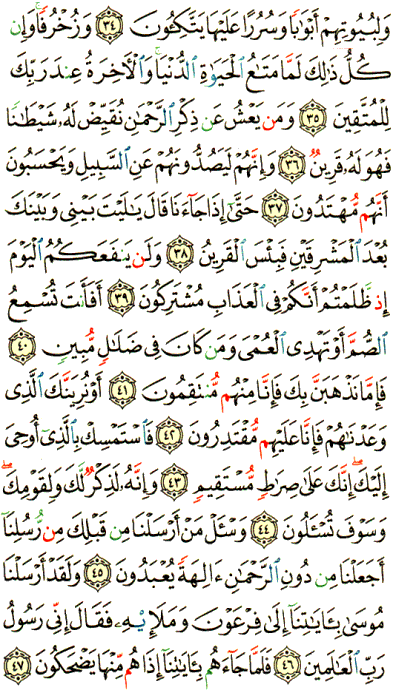 وَلِبُيُوتِهِمْ أَبْوَٰبًا وَسُرُرًا عَلَيْهَا يَتَّكِـُٔونَ ٣٤ وَزُخْرُفًا وَإِن
كُلُّ ذَٰلِكَ لَمَّا مَتَٰعُ ٱلْحَيَوٰةِ ٱلدُّنْيَا وَٱلْءَاخِرَةُ عِندَ رَبِّكَ
لِلْمُتَّقِينَ ٣٥ وَمَن يَعْشُ عَن ذِكْرِ ٱلرَّحْمَٰنِ نُقَيِّضْ لَهُۥ شَيْطَٰنًا
فَهُوَ لَهُۥ قَرِينٌ ٣٦ وَإِنَّهُمْ لَيَصُدُّونَهُمْ عَنِ ٱلسَّبِيلِ وَيَحْسَبُونَ
أَنَّهُم مُّهْتَدُونَ ٣٧ حَتَّىٰٓ إِذَا جَآءَنَا قَالَ يَٰلَيْتَ بَيْنِى وَبَيْنَكَ
بُعْدَ ٱلْمَشْرِقَيْنِ فَبِئْسَ ٱلْقَرِينُ ٣٨ وَلَن يَنفَعَكُمُ ٱلْيَوْمَ
إِذ ظَّلَمْتُمْ أَنَّكُمْ فِى ٱلْعَذَابِ مُشْتَرِكُونَ ٣٩ أَفَأَنتَ تُسْمِعُ
ٱلصُّمَّ أَوْ تَهْدِى ٱلْعُمْىَ وَمَن كَانَ فِى ضَلَٰلٍ مُّبِينٍ ٤٠
فَإِمَّا نَذْهَبَنَّ بِكَ فَإِنَّا مِنْهُم مُّنتَقِمُونَ ٤١ أَوْ نُرِيَنَّكَ ٱلَّذِى
وَعَدْنَٰهُمْ فَإِنَّا عَلَيْهِم مُّقْتَدِرُونَ ٤٢ فَٱسْتَمْسِكْ بِٱلَّذِىٓ أُوحِىَ
إِلَيْكَ ۖ إِنَّكَ عَلَىٰ صِرَٰطٍ مُّسْتَقِيمٍ ٤٣ وَإِنَّهُۥ لَذِكْرٌ لَّكَ وَلِقَوْمِكَ ۖ
وَسَوْفَ تُسْـَٔلُونَ ٤٤ وَسْـَٔلْ مَنْ أَرْسَلْنَا مِن قَبْلِكَ مِن رُّسُلِنَآ
أَجَعَلْنَا مِن دُونِ ٱلرَّحْمَٰنِ ءَالِهَةً يُعْبَدُونَ ٤٥ وَلَقَدْ أَرْسَلْنَا
مُوسَىٰ بِـَٔايَٰتِنَآ إِلَىٰ فِرْعَوْنَ وَمَلَإِي۟هِۦ فَقَالَ إِنِّى رَسُولُ
رَبِّ ٱلْعَٰلَمِينَ ٤٦ فَلَمَّا جَآءَهُم بِـَٔايَٰتِنَآ إِذَا هُم مِّنْهَا يَضْحَكُونَ ٤٧